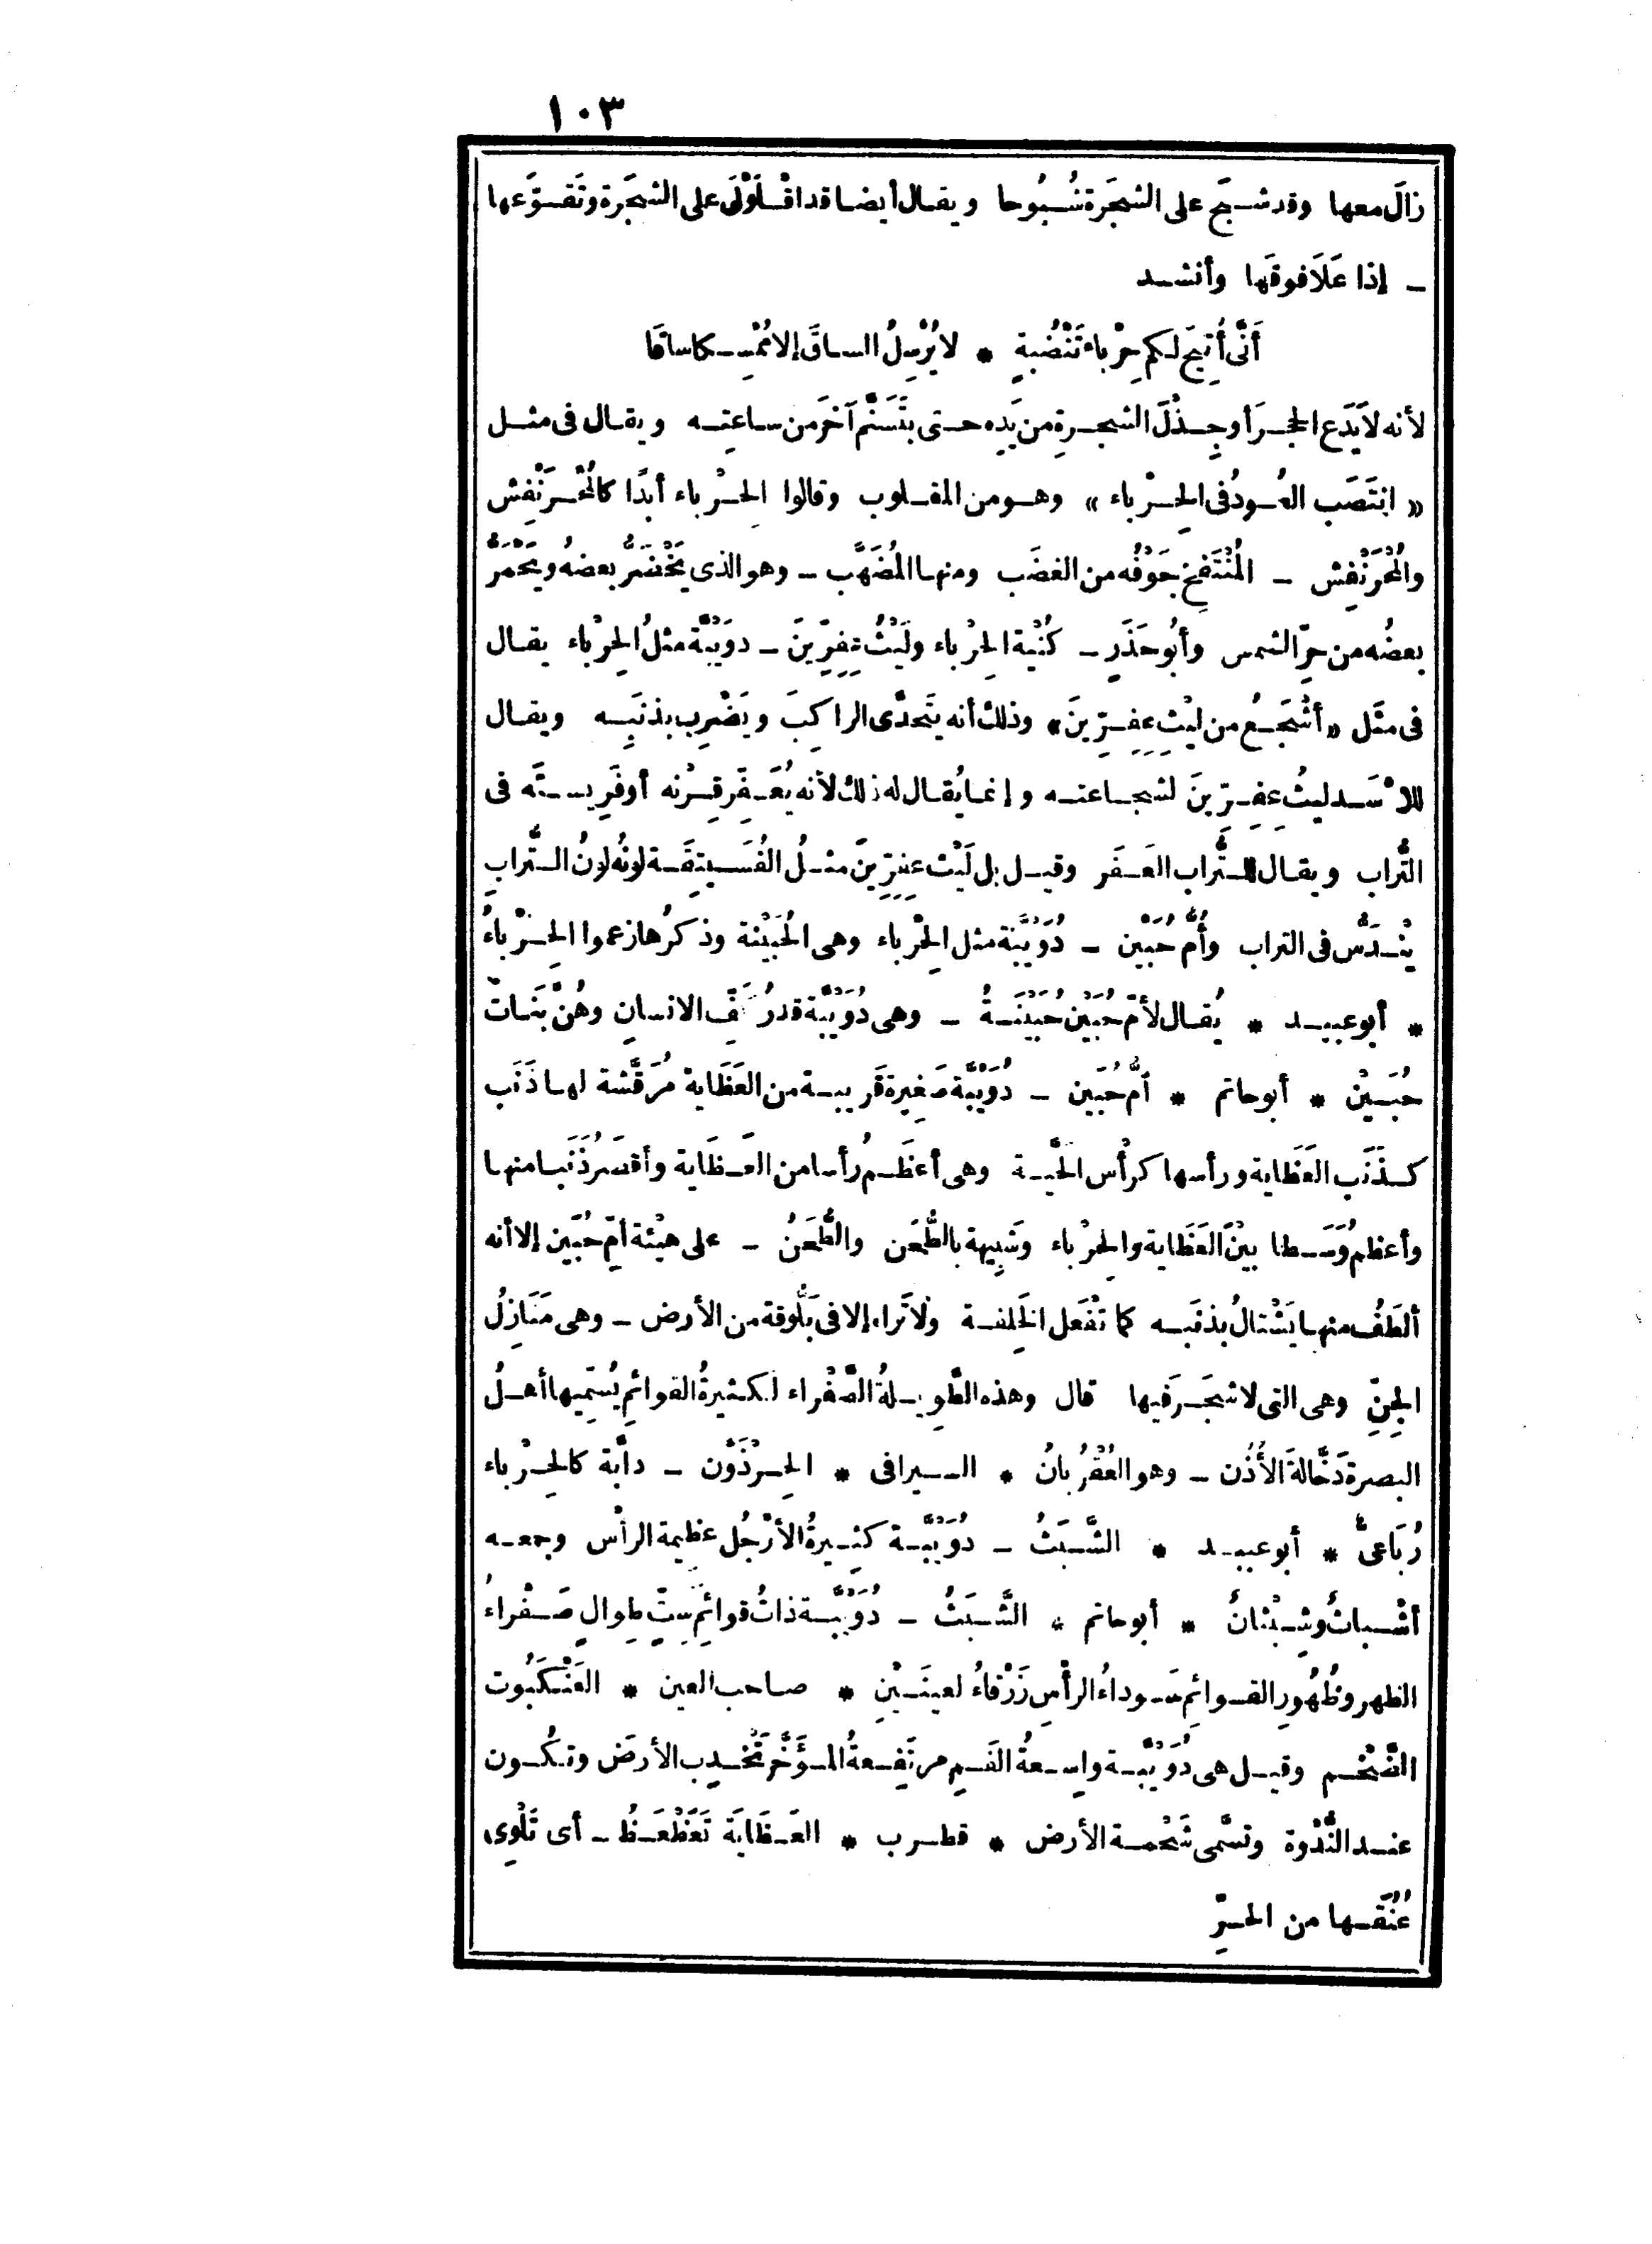 ١٠٣
زالَ معها وقد شَبَح على الشجَرة شُبُوحا ويقال أيضا قد اقْلَوْلَى على الشجَرة وتَقَوَّعها
ـ إذا عَلَا فوقَها وأنشد
أَنَّى أُتِيحَ لكم حِرْباءُ تَنْضُبةٍ * لا يُرْسِلُ الساقَ إلا مُمْسِكا ساقَا
لأنه لا يَدَع الحجرَ أو جِذْلَ الشجرةِ من يَدِه حتى يَتَسَنَّم آخَرَ من ساعتِه ويقال فى مثل
« انتَصَب العُودُ فى الحِرْباء » وهو من المقلوب وقالوا الحِرْباء أبدًا كالمُخْرَنْفِش
والمُحْرَنْفِش ـ المُنْتَفِخ جَوْفُه من الغضَب ومنها المُضَهَّب ـ وهو الذى يَخْضَرُّ بعضُه ويَحْمَرُّ
بعضُه من حرِّ الشمس وأبُو حَذَرٍ ـ كُنْية الحِرْباء ولَيْثُ عِفِرِّينَ ـ دُوَيْبَّة مثلُ الحِرْباء يقال
فى مثَل « أشْجَعُ من ليْثِ عِفِرِّينَ » وذلك أنه يتَحدَّى الراكِبَ ويَضْرِب بذنَبِه ويقال
للأسَد ليثُ عِفِرِّينَ لشجاعته وإنما يُقال له ذلك لأنه يُعَفِّر قِرْنه أو فَرِيسَتَه فى
التُّراب ويقال للتُّراب العَفَر وقيل بل لَيْث عِفِرِّينَ مثلُ الفُسَيتِقَة لونُه لونُ التُّرابِ
يَنْدَسُّ فى التراب وأُمُّ حُبَيْن ـ دُوَيْبَّة مثل الحِرْباء وهى الحُبَيْنة وذكرُها زعموا الحِرْباءُ
* أبو عبيد * يُقال لأُمِّ حُبَيْن حُبَيْنَةُ ـ وهى دُوَيْبَّة قدرُ كَفِّ الانسانِ وهُنَّ بَنَات
حُبَيْنٍ * أبو حاتم * أُمُّ حُبَيْن ـ دُوَيْبَّة صَغِيرة قَرِيبة من العَظَاية مُرَقَّشة لها ذَنَب
كذَنَب العَظَاية ورأسها كرأْس الحَيَّة وهى أعظَمُ رأسا من العَظَاية وأقصَرُ ذَنَبا منها
وأعظم وَسَطا بيْنَ العَظَاية والحِرْباء وشَبِيهة بالطُّحَن والطُّحَنُ ـ على هيْئة أُمِّ حُبَيْن إلا أنه
ألطَفُ منها يَشْتالُ بذنَبه كما تَفْعَل الخَلِفة ولا تَراه إلا فى بَلُّوقة من الأرض ـ وهى مَنَازِلُ
الجِنِّ وهى التى لا شجَر فيها قال وهذه الطَّوِيلةُ الصَّفْراء الكثيرةُ القوائمِ يُسَمِّيها أهلُ
البصرة دَخَّالةَ الأُذُن ـ وهو العُقْرُبانُ * السيرافى * الحِرْذَوْن ـ دابَّة كالحِرْباء
رُبَاعىٌّ * أبو عبيد * الشَّبَثُ ـ دُوَيْبَّة كثيرةُ الأرْجُل عظيمة الرأس وجمعه
أشْباثٌ وشِبْثانٌ * أبو حاتم * الشَّبَثُ ـ دُوَيْبَّة ذاتُ قوائمَ سِتٍّ طِوالٍ صَفْراءُ
الظهر وظُهُورِ القوائمِ سَوداءُ الرأسِ زَرْقاءُ لعينَيْنِ * صاحب العين * العَنْكَبُوت
الضَّخْم وقيل هى دُوَيْبَّة واسِعةُ الفَمِ مرتَفِعةُ المُؤَخَّر تُخَدِّب الأرضَ وتكُون
عند النُّدْوة وتسمَّى شَحْمة الأرض * قطرب * العَظَاية تَعَظْعَظُ ـ أى تَلْوِى
عُنُقَها من الحرِّ